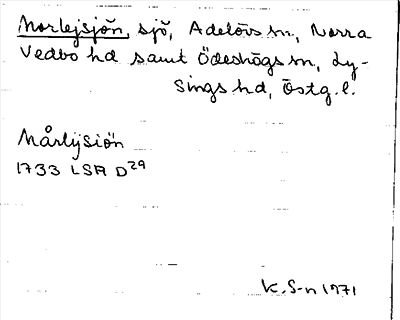 Norlejsjön, sjö, Adelövs sn, Norra
Vedbo hd samt Ödeshögs sn, Ly-
sings hd, Östg. l.
Nårlijsiön
1733 LSA D29
K. S-n 1971